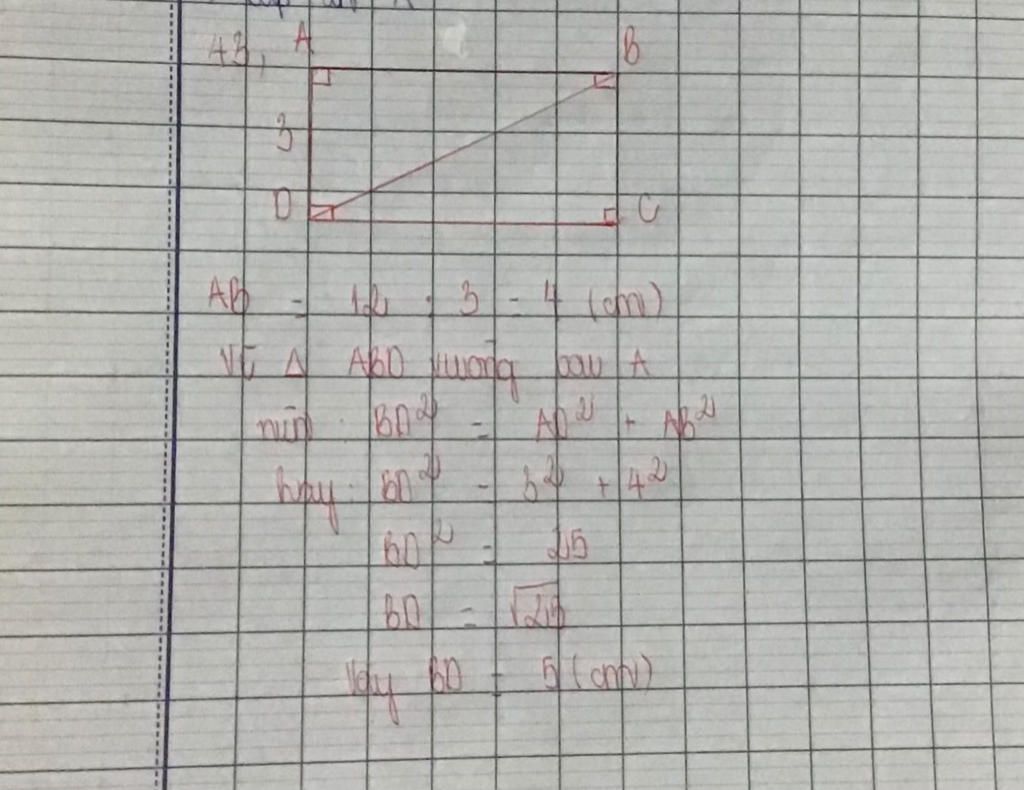 43, A B
3
D C
AB = 12 : 3 = 4 (cm)
Vì Δ ABD vuông tại A
nên: BD² = AD² + AB²
hay: BD² = 3² + 4²
BD² = 25
BD = √25
Vậy BD = 5 (cm)